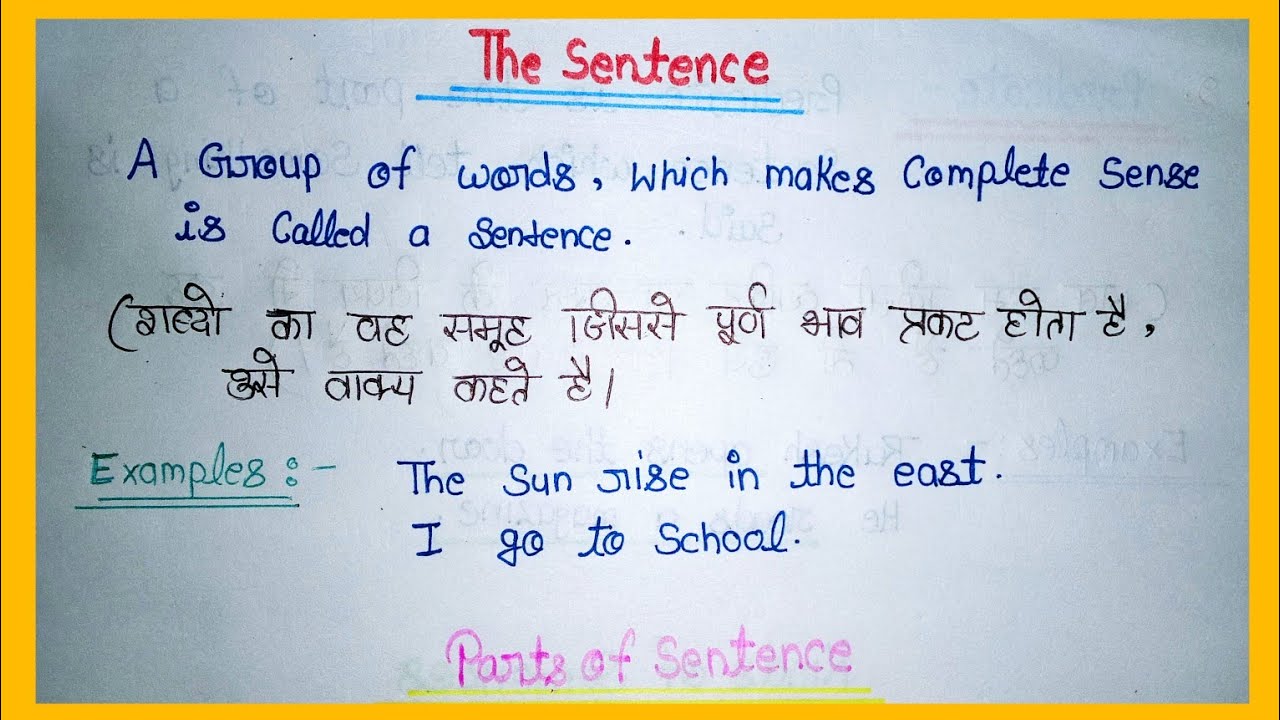 The Sentence
A Group of words, which makes Complete Sense
is Called a Sentence.
(शब्दों का वह समूह जिससे पूर्ण भाव प्रकट होता है,
उसे वाक्य कहते है।
Examples :- The Sun rise in the east.
I go to School.
Parts of Sentence